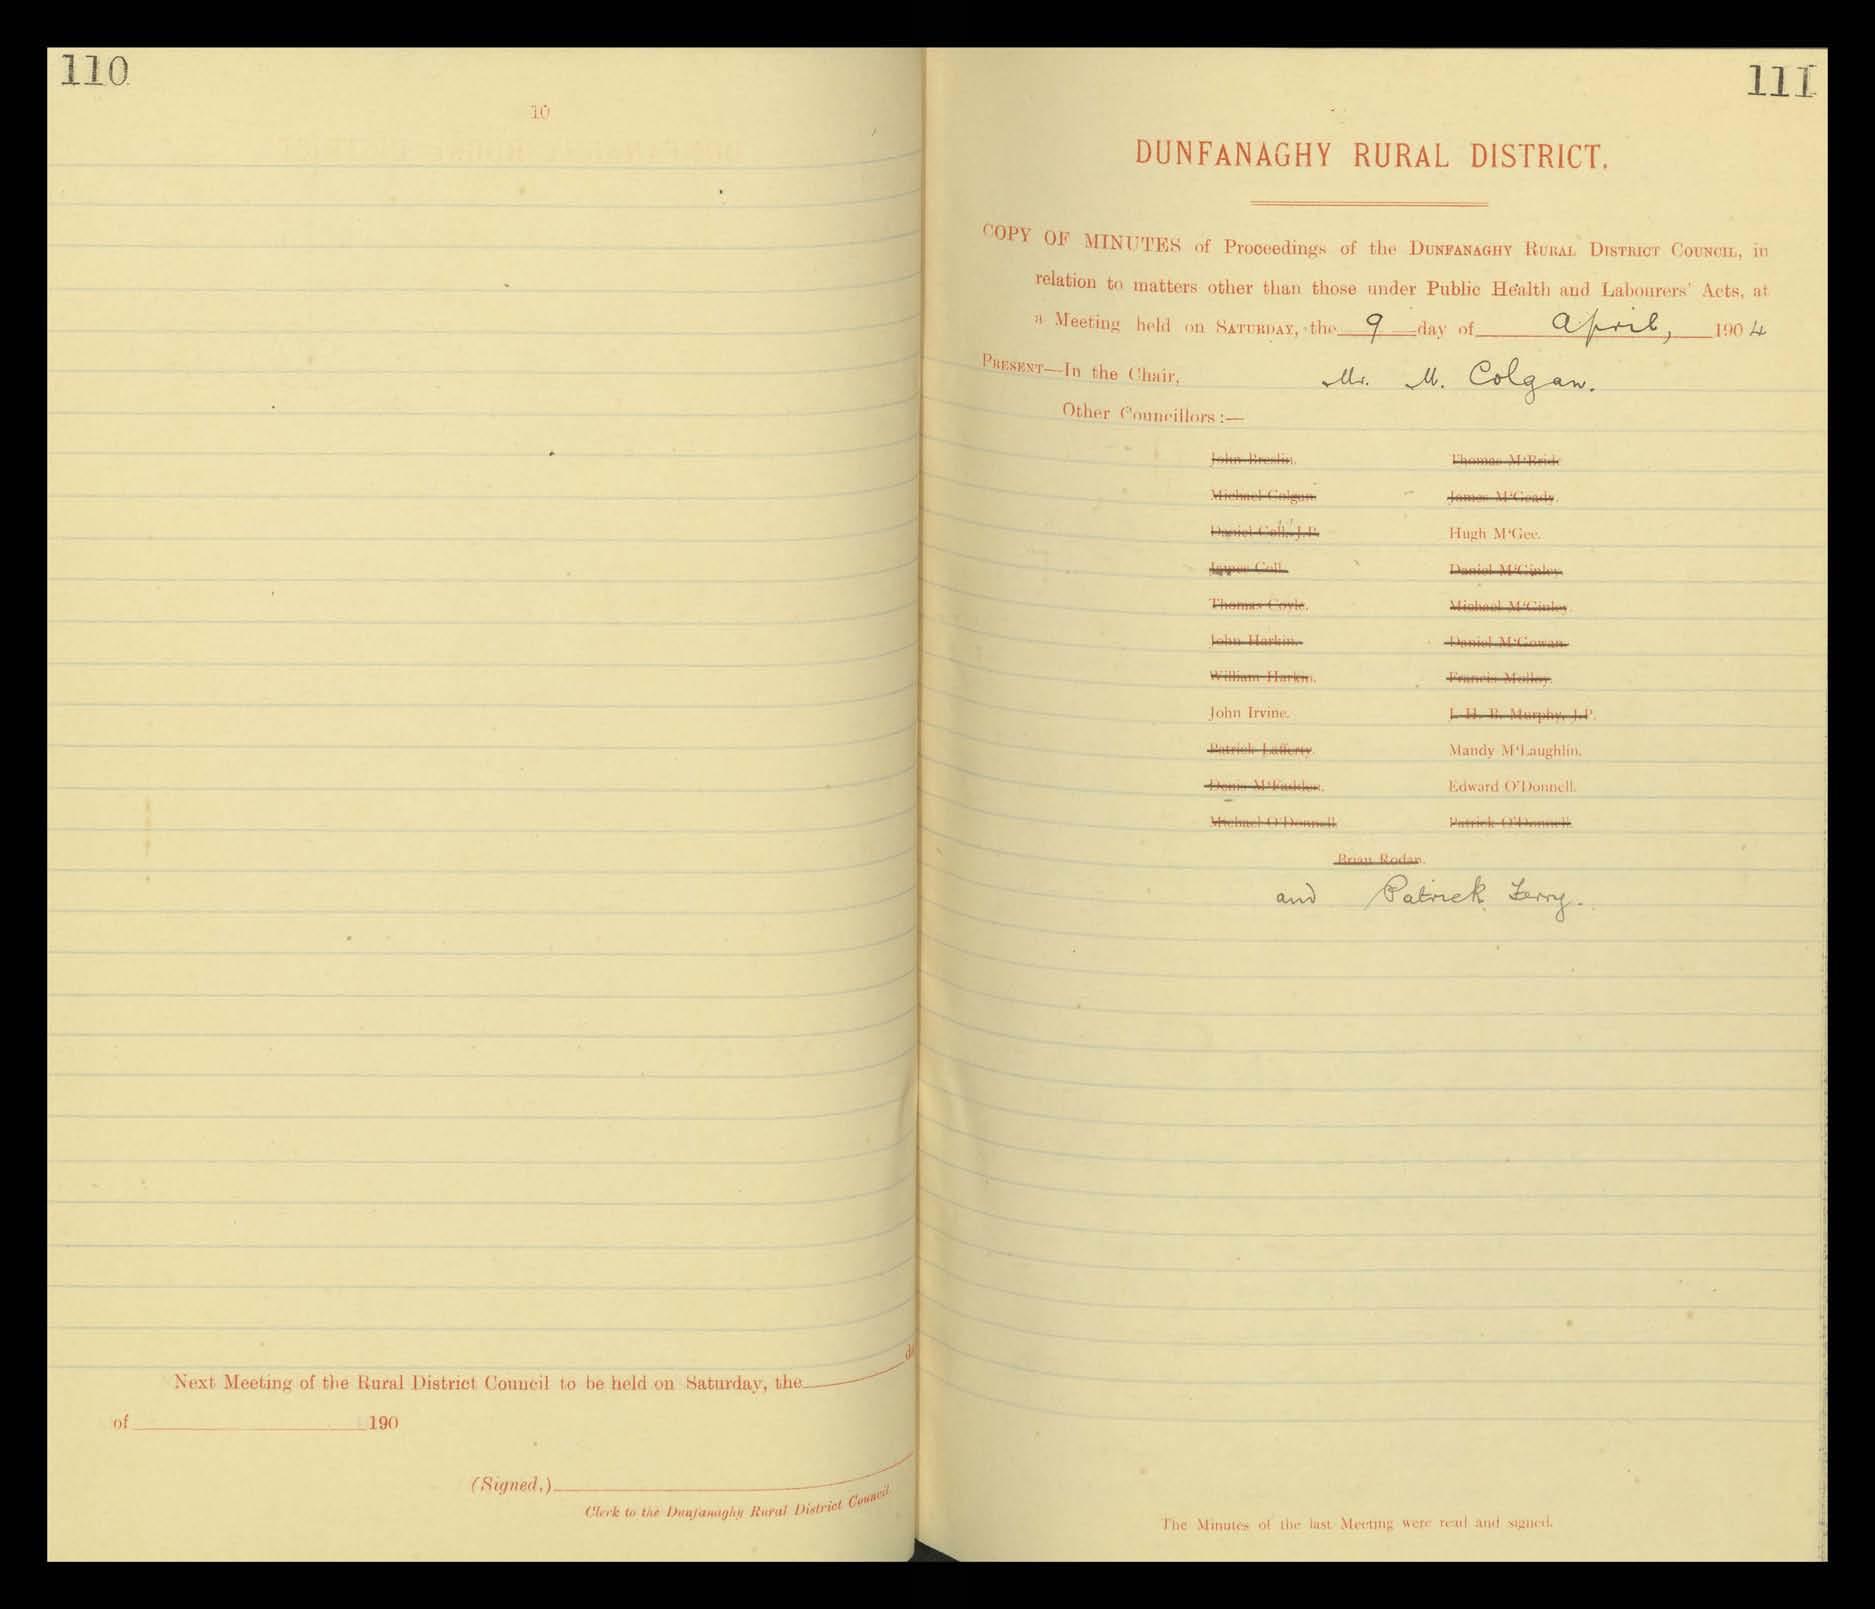 110
10
Next Meeting of the Rural District Council to be held on Saturday, the
of 190
(Signed,)
Clerk to the Dunfanaghy Rural District Council.
111
DUNFANAGHY RURAL DISTRICT.
COPY OF MINUTES of Proceedings of the DUNFANAGHY RURAL DISTRICT COUNCIL, in
relation to matters other than those under Public Health and Labourers' Acts, at
a Meeting held on SATURDAY, the 9 day of April, 1904
PRESENT—In the Chair, Mr. M. Colgan.
Other Councillors:—
John Breslin. Thomas M'Bride
Michael Colgan. James M'Geady.
Daniel Coll, J.P. Hugh M'Gee.
James Coll. Daniel M'Ginley.
Thomas Coyle. Michael M'Ginley
John Harkin. Daniel M'Gowan.
William Harkin. Francis Molloy.
John Irvine. I. H. B. Murphy, J.P.
Patrick Lafferty. Mandy M'Laughlin.
Denis M'Fadden. Edward O'Donnell.
Michael O'Donnell. Patrick O'Donnell.
Brian Rodan.
and Patrick Ferry.
The Minutes of the last Meeting were read and signed.